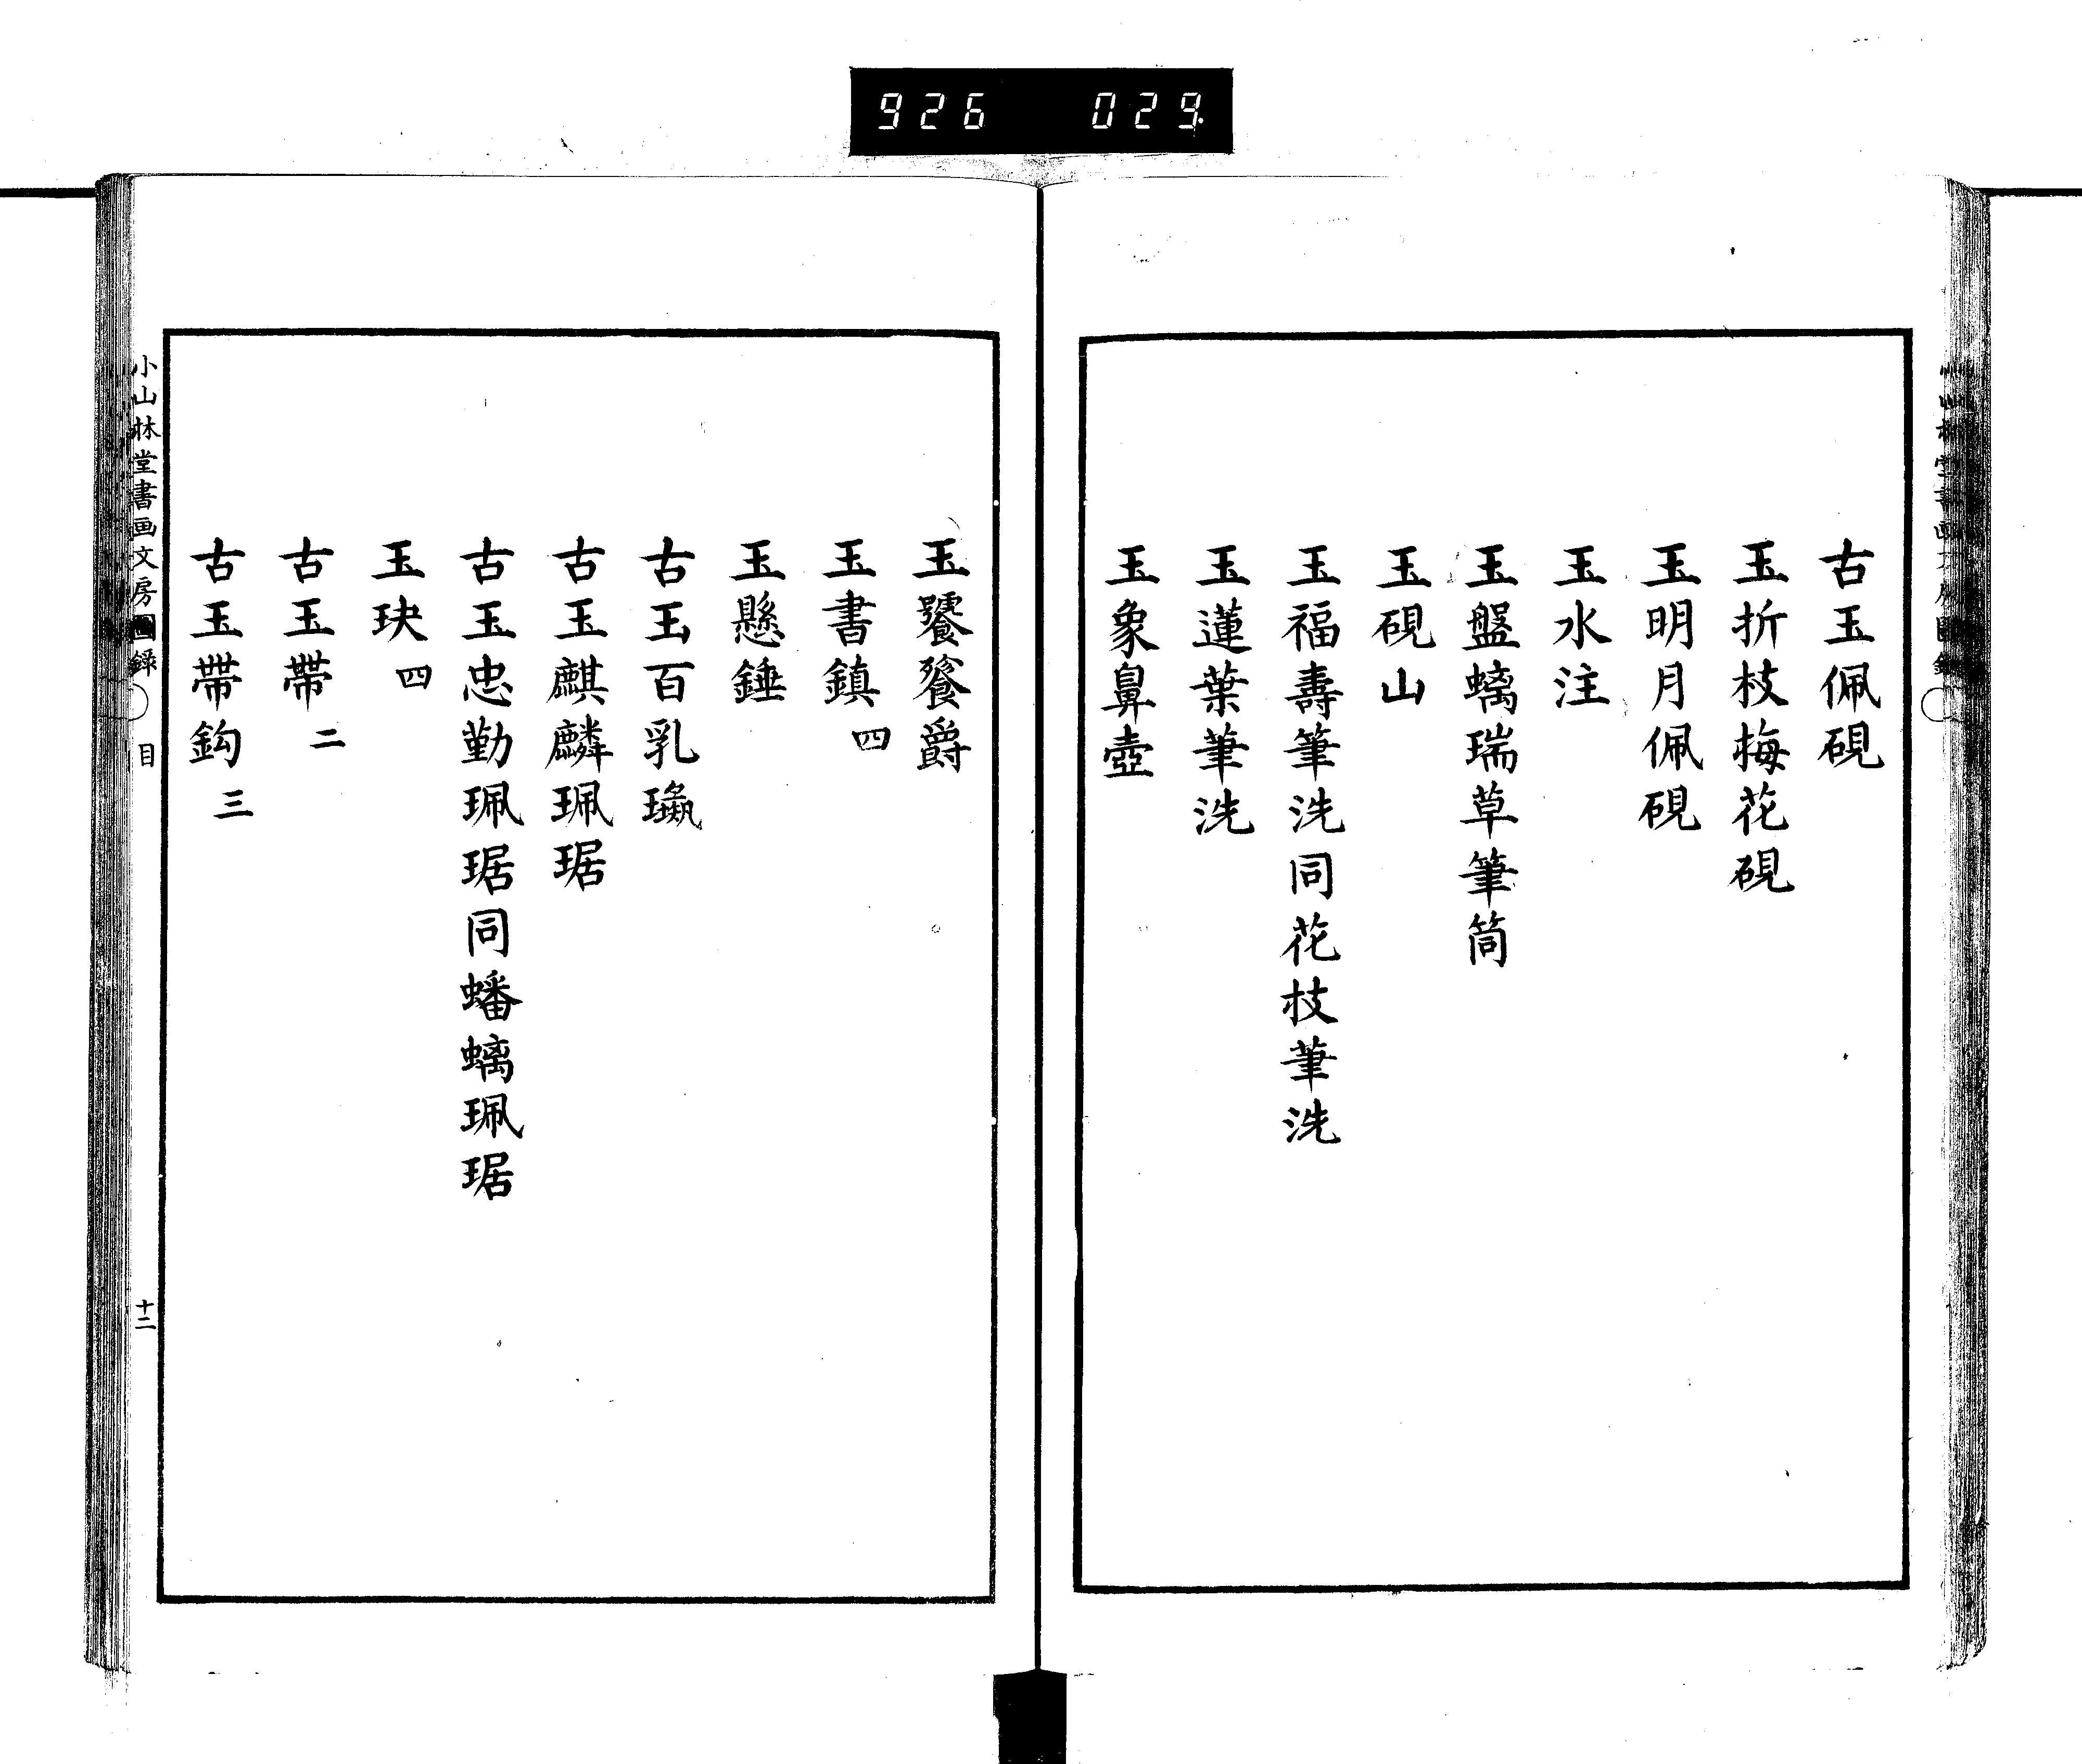 926 029
古玉佩硯
玉折枝梅花硯
玉明月佩硯
玉水注
玉盤螭瑞草筆筒
玉硯山
玉福壽筆洗同花枝筆洗
玉蓮葉筆洗
玉象鼻壺
玉饕餮爵
玉書鎮四
玉懸錘
古玉百乳
古玉麒麟珮琚
古玉忠勤珮琚同蟠螭珮琚
玉玦四
古玉帶二
古玉帶鈎三
小山林堂書画文房圖録 目 十二